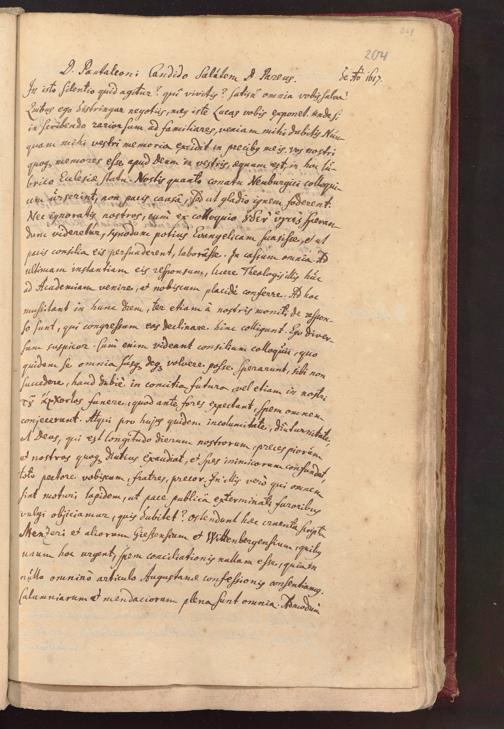 201
204
D. Pantaleoni Candido Salutem D. Pareus. de Ao 1617.
In isto silentio quid agitur? qui vivitis? satisne omnia vobis salva?
Quibus ego distringar negotiis, nunc iste Lucas vobis exponet. unde si
in scribendo rarior sum ad familiares, veniam mihi dabitis. Nun-
quam mihi vestri memoria excidit in precibus meis. vos nostri
quoque memores esse apud Deum in vestris, aequum est, in hoc lu-
brico Ecclesiae statu. Nostis quanto conatu Neuburgici colloqui-
um urserint, non pacis causa, sed ut gladio ignem foderent.
Nec ignoratis nostros, cum ex colloquio
dum videretur, Synodum potius Evangelicam suasisse, et ut
pacis consilia eis persuaderent, laborasse. In cassum omnia. Ad
ultimam instantiam eis responsum, licere Theologis illis huc
ad Academiam venire, et nobiscum placide conferre. Ad hoc
mussitant in hunc diem, ter etiam a nostris moniti de respon-
so sunt, qui congressum eos declinare hinc colligunt. Ego diver-
sum suspicor. Cum enim videant consilium colloquii, quo
quidem se omnia susque deque volvere posse sperarunt, sibi non
succedere, haud dubie in comitia futura, vel etiam in nostri
funere, quod ante fores expectant, spem omnem
conjecerunt. Atqui pro hujus quidem incolumitate, diuturnitate,
ut Deus, qui est longitudo dierum nostrorum, preces piorum
et nostras quoque diutius exaudiat, et spes inimicorum confundat,
toto pectore vobiscum, fratres, precor. In illis vero qui omnem
sint moturi lapidem, ut pace publica exterminati furoribus
vulgi objiciamur, quis dubitet? ostendunt hoc cruenta scripta
Menzeri et aliorum Giessensium et Wittenbergensium, quibus
unum hoc urgent, spem conciliationis nullam esse, quia in
nullo omnino articulo Augustanae confessionis consentiamus.
Calumniarum et mendaciorum plena sunt omnia. Admodum